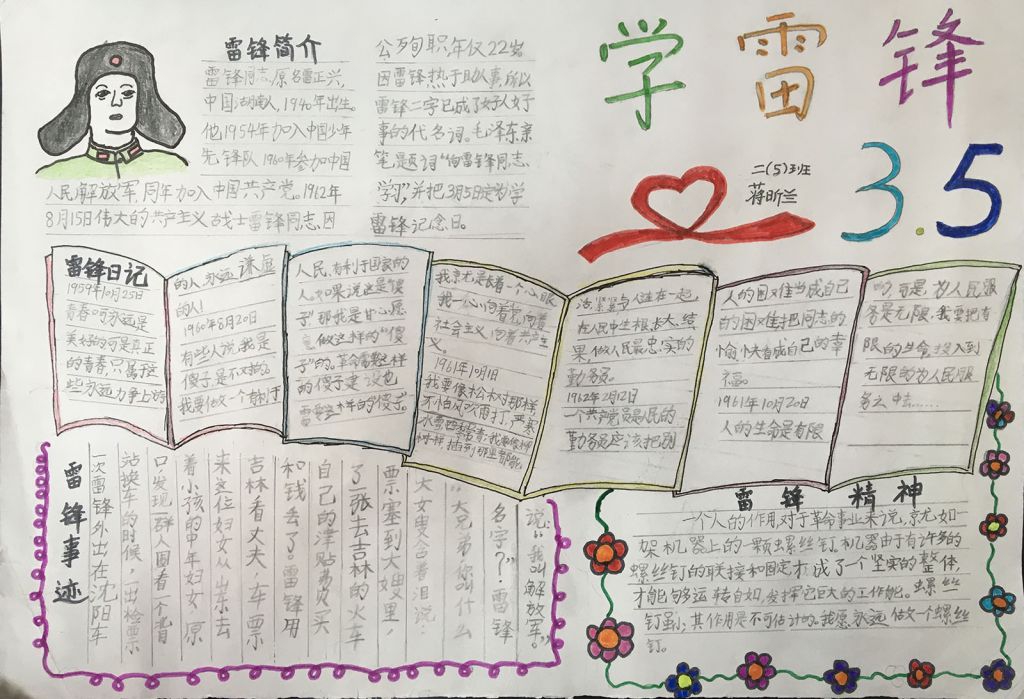 学雷锋
3.5
二(5)班
蒋昕兰
雷锋简介
雷锋同志,原名雷正兴,
中国湖南人,1940年出生。
他1954年加入中国少年
先锋队,1960年参加中国
人民解放军,同年加入中国共产党。1962年
8月15日伟大的共产主义战士雷锋同志,因
公殉职,年仅22岁
因雷锋热于助人事,所以
雷锋二字已成了好人好
事的代名词。毛泽东亲
笔题词“向雷锋同志
学习”,并把3月5日定为学
雷锋记念日。
雷锋日记
1959年10月25日
青春啊,永远是
美好的,可是真正
的青春,只属于这
些永远力争上游
的人,永远谦虚
的人!
1960年8月20日
有些人说,我是
傻子,是不对的。
我要做一个有利于
人民,有利于国家的
人。如果说这是“傻
子”那我是甘心愿
意做这样的“傻
子”的。革命需要这样
的傻子,建设也
需要这样的“傻子”。
我就是长着一个心眼
我一心向着党,向着
社会主义,向着共产主
义
1961年10月1日
我要像松树那样
不怕风吹雨打,严寒
活,紧紧与人连在一起,
在人民中生根、长大、结
果,做人民最忠实的
勤务员。
1962年2月12日
一个共产党员是人民的
勤务员应该把别
人的困难当成自己
的困难,把同志的
愉快看成自己的幸
福。
1961年10月20日
人的生命是有限
的,可是,为人民服
务是无限,我要把有
限的生命,投入到
无限的为人民服
务之中去……
雷锋事迹
一次雷锋外出在沈阳车
站换车的时候,一出检票
口,发现一群人围着一个背
着小孩的中年妇女,原
来这位妇女从山东去
吉林看丈夫,车票
和钱丢了。雷锋用
自己的津贴费买
了一张去吉林的火车
票塞到大嫂手里,
大嫂含着泪说:
“大兄弟,你叫什么
名字?”雷锋
说:“我叫解放军。”
雷锋精神
一个人的作用,对于革命事业来说,就如一
架机器上的一颗螺丝钉。机器由于有许多的
螺丝钉的联接和固定,才成了一个坚实的整体,
才能够运转自如,发挥它巨大的工作能。螺丝
钉虽小,其作用是不可估计的。我愿永远做个螺丝
钉。